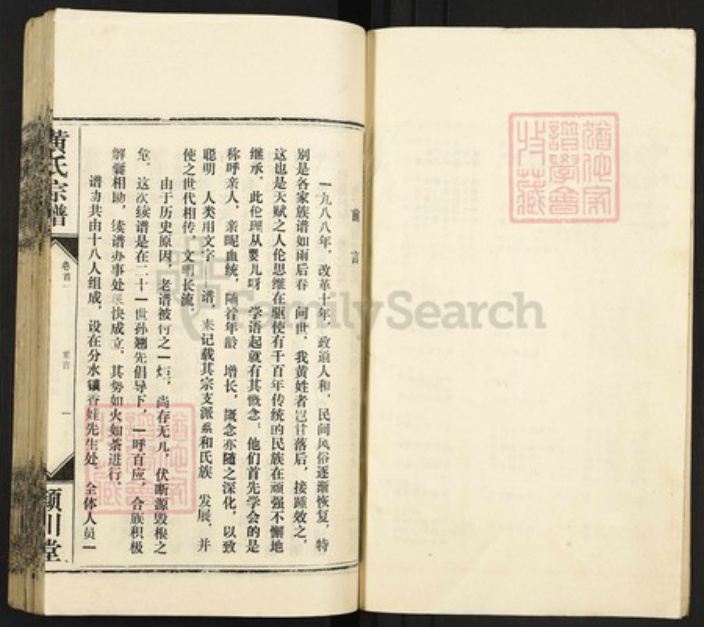 前言
一九八八年，改革十年，政通人和，民间风俗逐渐恢复，特
别是各家族谱如雨后春 问世，我黄姓者岂甘落后，接踵效之，
这也是天赋之人伦思维在驱使有千百年传统的民族在顽强不懈地
继承，此伦理从婴儿呀 学语起就有其概念，他们首先学会的是
称呼亲人，亲昵血统，随着年龄 增长，概念亦随之深化，以致
聪明 人类用文字 谱，来记载其宗支派系和氏族 发展，并
使之世代相传，文明长流。
由于历史原因，老谱被付之一炬，尚存无几，伏断源毁根之
危，这次续谱是在二十一世孙翘先倡导下，一呼百应，合族积极
解囊相助，续谱办事处很快成立，其势如火如荼进行。
谱协共由十八人组成，设在分水镇香娃先生处，全体人员一
黄氏宗谱
卷首
一
颍川堂
谱学会
收藏
FamilySearch